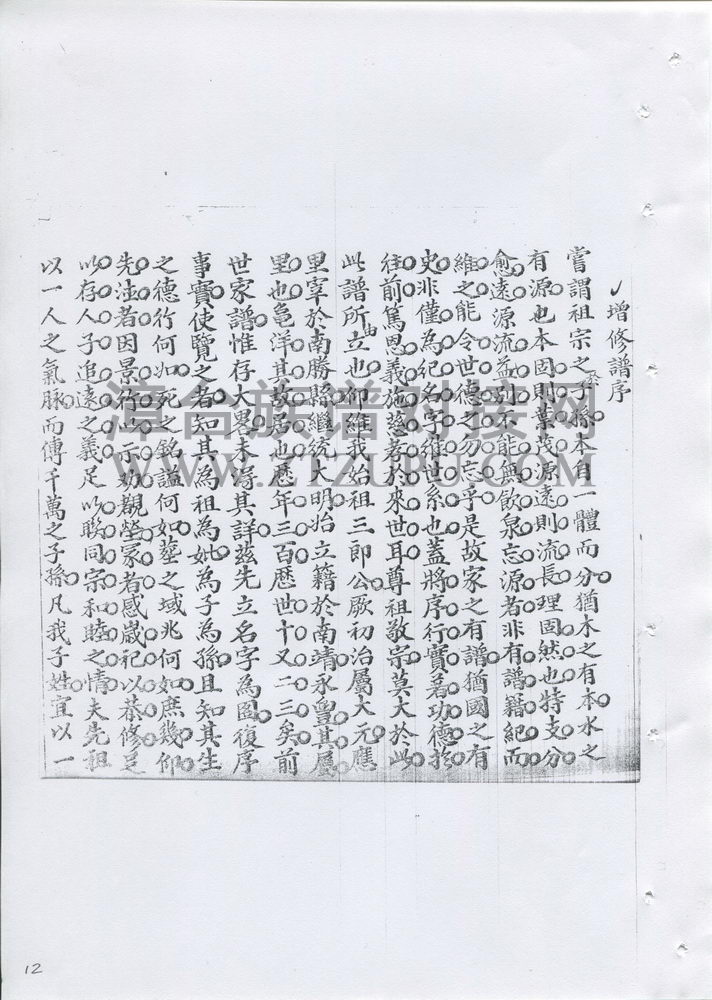 增修譜序
嘗謂祖宗之於子孫本自一體而分猶木之有本水之
有源也本固則葉茂源遠則流長理固然也特支分
愈遠源流益別不能無飲泉忘源者非有譜籍紀而
維之能令世德之勿忘乎是故家之有譜猶國之有
史非僅為紀名字維世系也蓋將序行實著功德於
往前篤恩義施慈孝於來世耳尊祖敬宗莫大於此
此譜所由立也仰維我始祖三郎公厥初治屬大元應
里宰於南勝縣繼統大明始立籍於南靖永豐其屬
里也龜洋其故居也歷年三百歷世十又二三矣前
世家譜惟存大畧未得其詳茲先立名字為圖復序
事實使覽之者知其為祖為妣為子為孫且知其生
之德行何如死之銘謚何如塟之域兆何如庶幾仰
先泩者因景竹以示劝觀塋冢者感嵗祀以恭修足
以存人子追遠之義足以聯同宗和睦之情夫先祖
以一人之氣脉而傳千萬之子孫凡我子姓宜以一
12
漳台族谱对接网
WWW.ZTZUPU.COM